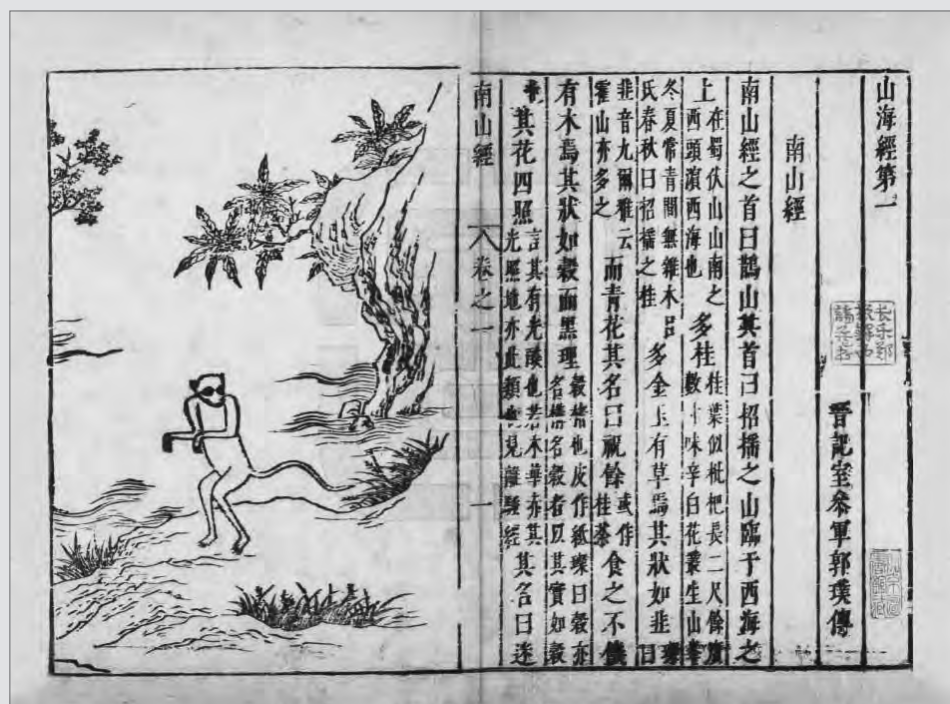 山海經第一
晉記室參軍郭璞傳
南山經
南山經之首曰鵲山其首曰招搖之山臨于西海之
上在蜀伏山山南之西頭濱西海也多桂桂葉似枇杷長二尺餘廣數寸味辛白花叢生山峯
冬夏常青間無雜木呂氏春秋曰招搖之桂多金玉有草焉其狀如韭璨曰
韭音九爾雅云霍山亦多之而青花其名曰祝餘或作桂荼食之不饑
有木焉其狀如榖而黑理榖楮也皮作紙璨曰榖亦名構名榖者以其實如榖
也其花四照言其有光燄也若木華赤其光照地亦此類也見離騷經其名曰迷
南山經 卷之一 一